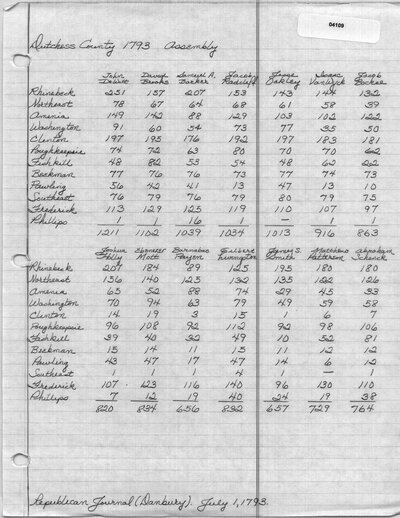 04109
Dutchess County 1793 Assembly
John David Samuel A. Jacob Jesse Isaac Jacob
DeWitt Brooks Barker Radcliff Oakley VanWyck Bockee
Rhinebeck 251 157 207 153 143 144 132
Northeast 78 67 64 68 61 58 39
Amenia 149 142 88 129 103 102 122
Washington 91 60 54 73 77 35 50
Clinton 197 195 176 192 197 183 181
Poughkeepsie 74 72 63 80 70 70 62
Fishkill 48 82 53 54 48 62 62
Beekman 77 76 76 73 77 74 73
Pawling 56 42 41 13 47 13 10
Southeast 76 79 76 79 80 79 75
Frederick 113 129 125 119 110 107 97
Philips 1 1 16 1 — 1 1
1211 1102 1039 1034 1013 916 863
Joshua Ebenezer Barnabas Gilbert James S. Matthew Abraham
Mott Payen Livingston Smith Patterson Schenck
Rhinebeck 207 184 89 125 195 180 180
Northeast 136 140 125 132 135 122 126
Amenia 65 52 88 74 29 45 33
Washington 70 94 63 79 49 59 58
Clinton 14 19 3 15 1 6 7
Poughkeepsie 96 108 92 112 92 98 106
Fishkill 39 40 32 49 10 52 81
Beekman 15 14 11 13 11 12 12
Pawling 43 47 17 47 14 6 12
Southeast 1 1 1 4 1 — 1
Frederick 107 123 116 140 96 130 110
Philips 7 12 19 40 24 19 38
820 834 656 832 657 729 764
Republican Journal (Danbury). July 1, 1793.